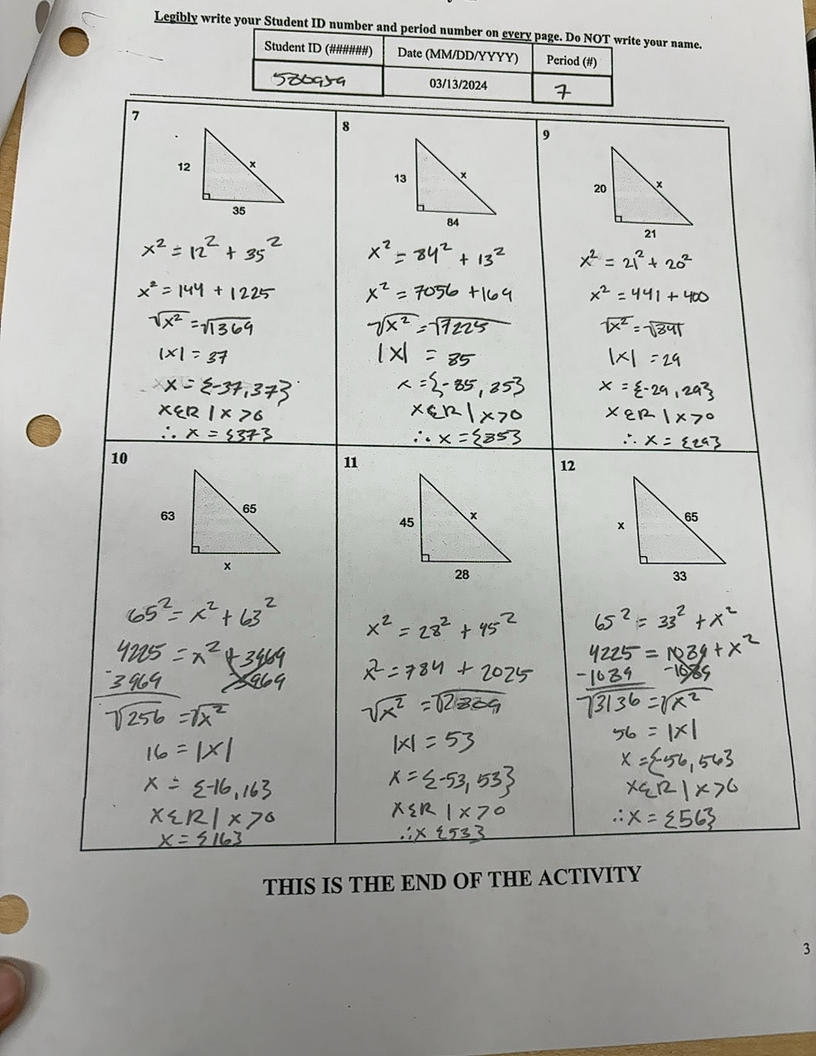 Legibly write your Student ID number and period number on every page. Do NOT write your name.
Student ID (######) Date (MM/DD/YYYY) Period (#)
03/13/2024 7
7
12
x
35
x² = 12² + 35²
x² = 144 + 1225
√x² = √1369
|x| = 37
x = {-37, 37}
x ε R | x > 0
∴ x = {37}
8
13
x
84
x² = 84² + 13²
x² = 7056 + 169
√x² = √7225
|x| = 85
x = {-85, 85}
x ε R | x > 0
∴ x = {85}
9
20
x
21
x² = 21² + 20²
x² = 441 + 400
√x² = √841
|x| = 29
x = {-29, 29}
x ε R | x > 0
∴ x = {29}
10
63
65
x
65² = x² + 63²
4225 = x² + 3969
-3969 -3969
√256 = √x²
16 = |x|
x = {-16, 16}
x ε R | x > 0
x = {16}
11
45
x
28
x² = 28² + 45²
x² = 784 + 2025
√x² = √2809
|x| = 53
x = {-53, 53}
x ε R | x > 0
∴ x {53}
12
x
65
33
65² = 33² + x²
4225 = 1089 + x²
-1089 -1089
√3136 = √x²
56 = |x|
x = {-56, 56}
x ε R | x > 0
∴ x = {56}
THIS IS THE END OF THE ACTIVITY
3